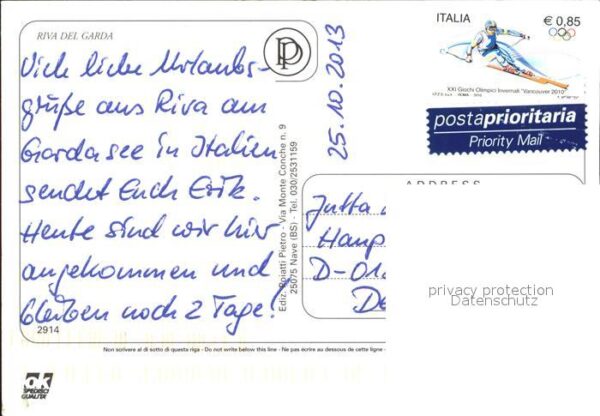 RIVA DEL GARDA
Viele liebe Urlaubs-
grüße aus Riva am
Gardasee in Italien
sendet Euch Erik.
Heute sind wir hier
angekommen und
bleiben noch 2 Tage!
2914
PD
25.10.2013
Ediz. Boiatti Pietro - Via Monte Conche n. 9
25075 Nave (BS) - Tel. 030/2531159
ITALIA € 0,85
XXI Giochi Olimpici Invernali "Vancouver 2010"
postaprioritaria
Priority Mail
ADDRESS
Jutta
Haup
D-01
De
privacy protection
Datenschutz
Non scrivere al di sotto di questa riga - Do not write below this line - Ne pas ecrire au dessous de cette ligne -
ok
SPEDISCI
QUALITA'